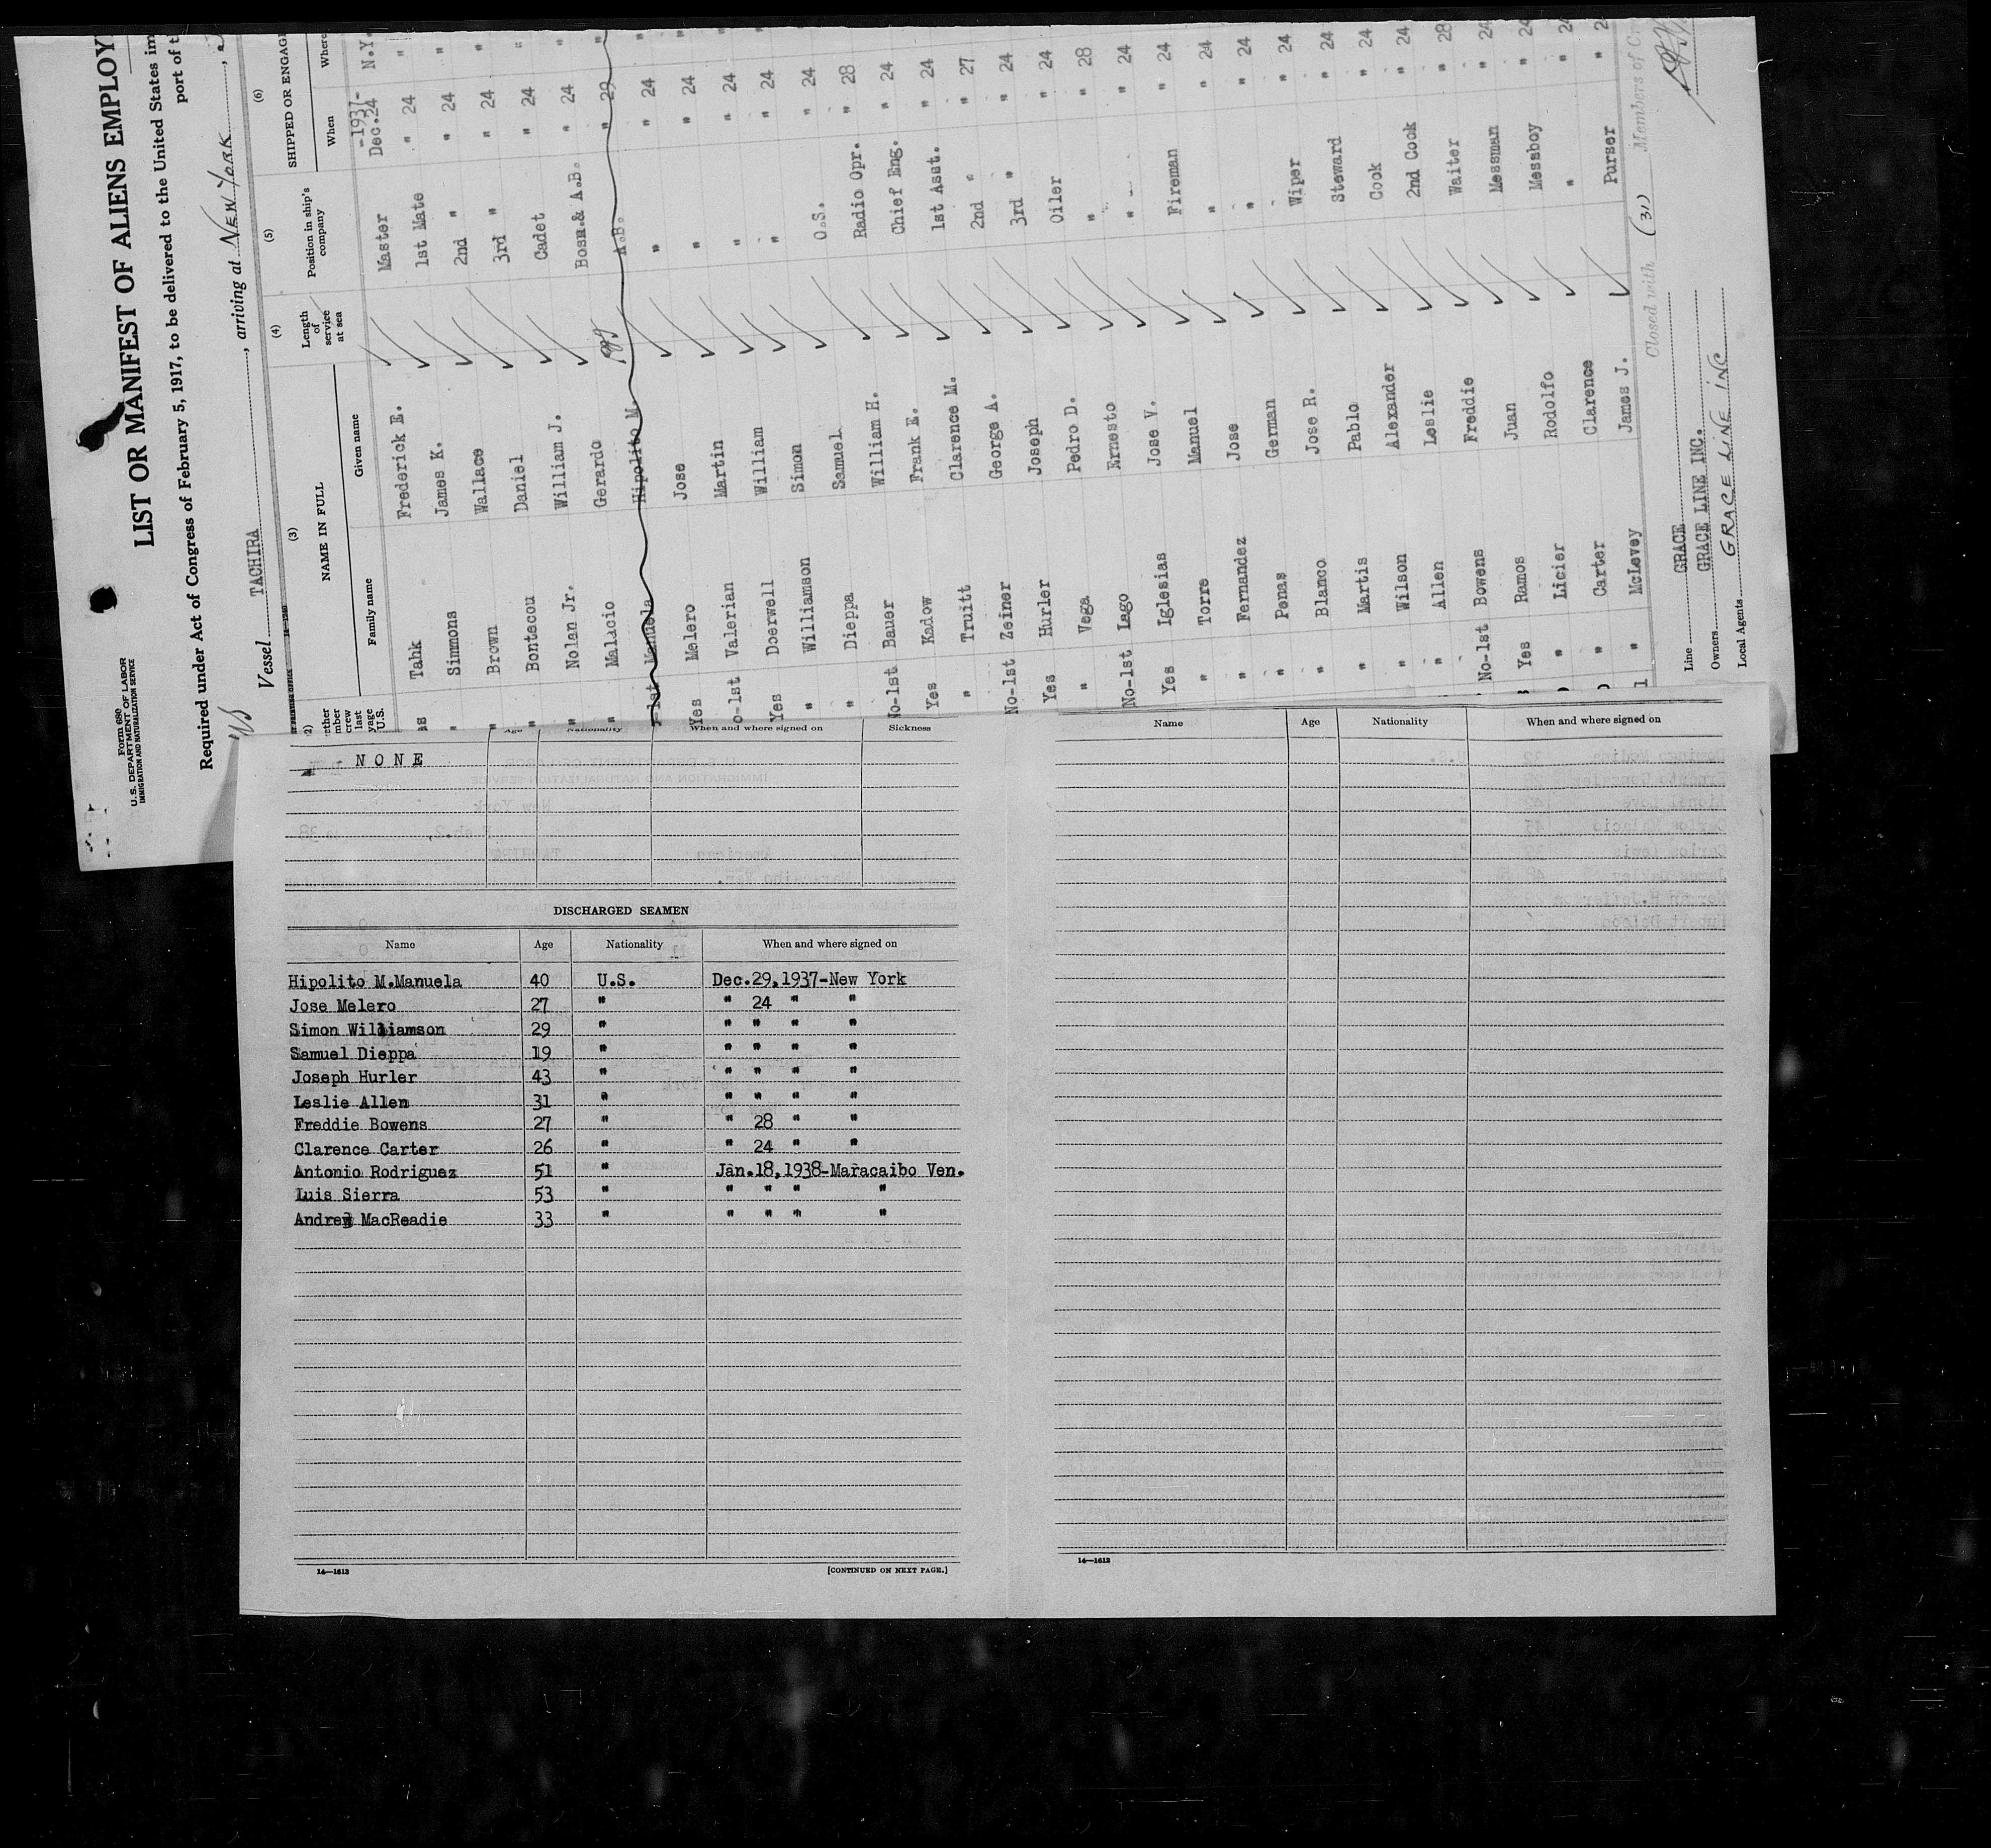 Form 680
U. S. DEPARTMENT OF LABOR
IMMIGRATION AND NATURALIZATION SERVICE
LIST OR MANIFEST OF ALIENS EMPLOY
Required under Act of Congress of February 5, 1917, to be delivered to the United States im
port of t
Vessel TACHIRA, arriving at NEW YORK,
(2) (3) (4) (5) (6)
NAME IN FULL Length of service at sea Position in ship's company SHIPPED OR ENGAG
Family name Given name When Where
-1937-
Tahk Frederick E. Master Dec.24 N.Y.
" Simmons James K. 1st Mate " 24 "
" Brown Wallace 2nd " " 24 "
" Bontecou Daniel 3rd " " 24 "
" Nolan Jr. William J. Cadet " 24 "
" Malacio Gerardo Bosn.& A.B. " 24 "
-1st Manuela Hipolito M. A.B. " 29 "
Yes Melero Jose " " 24 "
o-1st Valerian Martin " " 24 "
Yes Doerwell William " " 24 "
" Williamson Simon " " 24 "
" Dieppa Samuel O.S. " 24
No-1st Bauer William H. Radio Opr. " 28
Yes Kadow Frank E. Chief Eng. " 24
" Truitt Clarence M. 1st Asst. " 24
No-1st Zeiner George A. 2nd " " 27
Yes Hurler Joseph 3rd " " 24
" Vega Pedro D. Oiler " 24
No-1st Lago Ernesto " " 28
Yes Iglesias Jose V. " " 24
" Torre Manuel Fireman " 24
" Fernandez Jose " " 24
" Penas German " " 24
" Blanco Jose R. Wiper " 24
" Martis Pablo Steward " 24
" Wilson Alexander Cook " 24
" Allen Leslie 2nd Cook " 24
No-1st Bowens Freddie Waiter " 28
Yes Ramos Juan Messman " 24
" Licier Rodolfo Messboy " 24
" Carter Clarence " " 24
" McLevey James J. Purser " 2
Closed with (31) Members of C
Line GRACE
Owners GRACE LINE INC.
Local Agents GRACE LINE INC
Age Nationality When and where signed on Sickness
- N O N E
DISCHARGED SEAMEN
Name Age Nationality When and where signed on
Hipolito M.Manuela 40 U.S. Dec.29,1937-New York
Jose Melero 27 " " 24 " "
Simon Williamson 29 " " " " "
Samuel Dieppa 19 " " " " "
Joseph Hurler 43 " " " " "
Leslie Allen 31 " " " " "
Freddie Bowens 27 " " 28 " "
Clarence Carter 26 " " 24 " "
Antonio Rodriguez 51 " Jan.18,1938-Maracaibo Ven.
Luis Sierra 53 " " " " "
Andrew MacReadie 33 " " " " "
14—1613 [CONTINUED ON NEXT PAGE.]
Name Age Nationality When and where signed on
14—1613